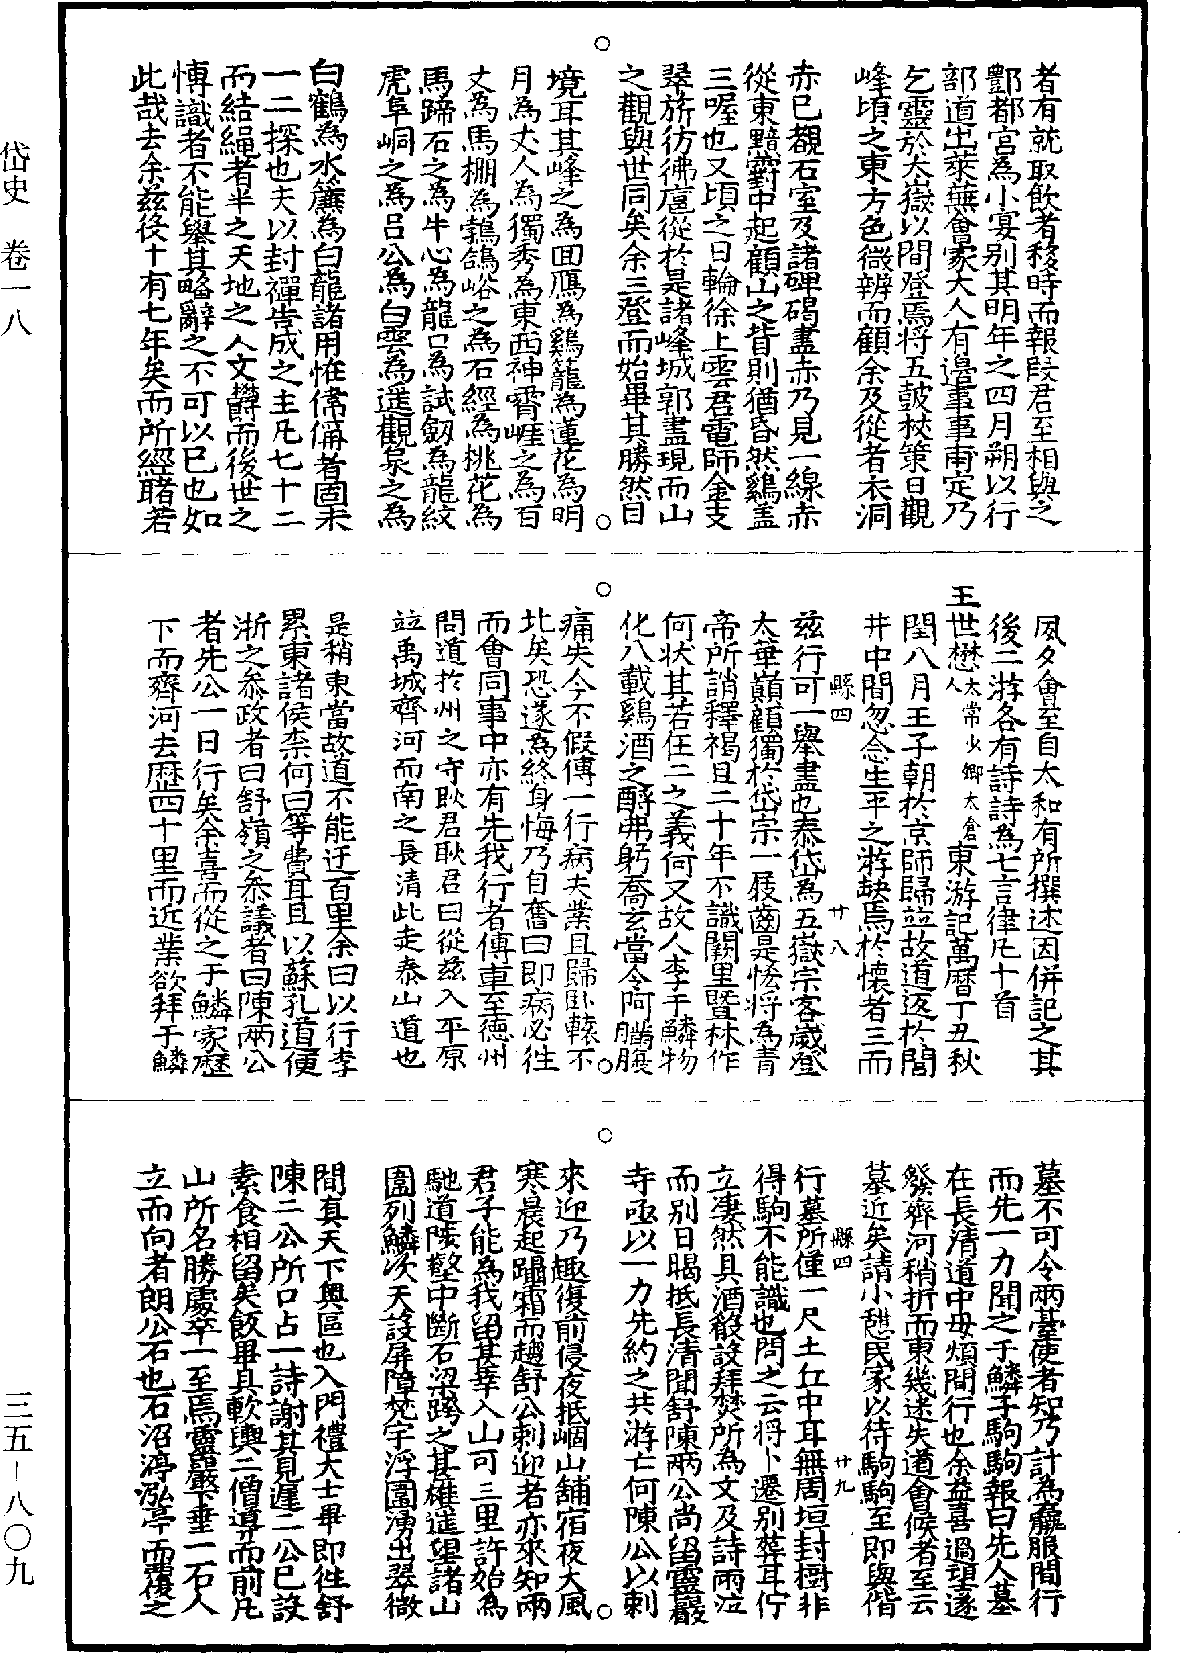 岱史 卷一八
三五－八〇九
者有就取飲者移時而報段君至相與之
酆都宮為小宴别其明年之四月朔以行
部道出萊蕪會家大人有邉事事甫定乃
乞靈於太嶽以間登焉将五皷杖策日觀
峰頃之東方色微辨而顧余及從者衣洞
赤已觀石室及諸碑碣盡赤乃見一線赤
從東黯䨴中起顧山之背則猶昏然鷄盖
三喔也又頃之日輪徐上雲君電師金支
翠旂彷彿扈從於是諸峰城郭盡現而山
之觀與世同矣余三登而始畢其勝然目
境耳其峰之為囬鴈為鷄籠為蓮花為明
月為丈人為獨秀為東西神霄崕之為百
丈為馬棚為鵓鴿峪之為石經為桃花為
馬蹄石之為牛心為龍口為試劒為龍紋
虎阜峒之為吕公為白雲為遥觀泉之為
白鶴為水簾為白龍諸用恠偉侢者固未
一二探也夫以封禪告成之主凡七十二
而結繩者半之天地之人文欝而後世之
愽識者不能舉其略辭之不可以已也如
此哉去余兹役十有七年矣而所經睹若
夙夕會至自太和有所撰述因併記之其
後二游各有詩詩為七言律凡十首
王世懋太常少卿太倉人東游記萬曆丁丑秋
閏八月王子朝於京師歸竝故道返於閭
井中間忽念生平之游缺焉於懷者三而
兹行可一舉盡也泰岱為五嶽宗客嵗登
太華巔顧獨於岱宗一屐齒是恡将為青
帝所誚釋褐且二十年不識闕里暨林作
何状其若在三之義何又故人李于鱗物
化八載鷄酒之酹弗躬喬玄當令阿瞞腹
痛失今不假傳一行病夫業且歸卧轅不
北矣恐遂為終身悔乃自奮曰即病必徃
而會同事中亦有先我行者傳車至德州
問道扵州之守耿君耿君曰從兹入平原
竝禹城齊河而南之長清此走泰山道也
是稍東當故道不能迂百里余曰以行李
累東諸侯柰何曰等費耳且以蘇孔道便
浙之叅政者曰舒嶺之叅議者曰陳兩公
者先公一日行矣余喜而從之于鱗家歷
下而齊河去歷四十里而近業欲拜于鱗
墓不可令兩臺使者知乃計為羸服間行
而先一力聞之于鱗子駒駒報曰先人墓
在長清道中毋煩間行也余益喜過望遂
發齊河稍折而東幾迷失道會候者至云
墓近矣請小憩民家以待駒駒至即與偕
行墓所僅一尺土丘中耳無周垣封樹非
得駒不能識也問之云将卜遷别葬耳佇
立凄然具酒殽設拜焚所為文及詩雨泣
而别日晹抵長清聞舒陳兩公尚留靈巖
寺亟以一力先約之共游亡何陳公以刺
來迎乃趣復前侵夜抵崓山舖宿夜大風
寒晨起躡霜而趨舒公刺迎者亦來知兩
君子能為我留甚幸入山可三里許始為
馳道陵壑中斷石梁跨之甚雄遥望諸山
圍列鱗次天設屏障梵宇浮圖湧出翠微
間真天下輿區也入門禮大士畢即徃舒
陳二公所口占一詩謝其見遲二公已設
素食相留矣飯畢具軟輿二僧導而前凡
山所名勝處卒一至焉靈巖下垂一石人
立而向者朗公石也石沼渟泓亭而覆之